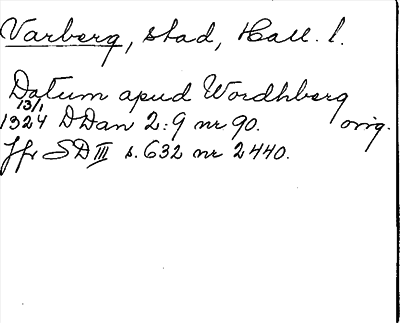 Varberg, stad, Hall. l.
Datum apud Wordhberg
13/1
1324 DDan 2:9 nr 90. orig.
Jfr SD III s. 632 nr 2440.